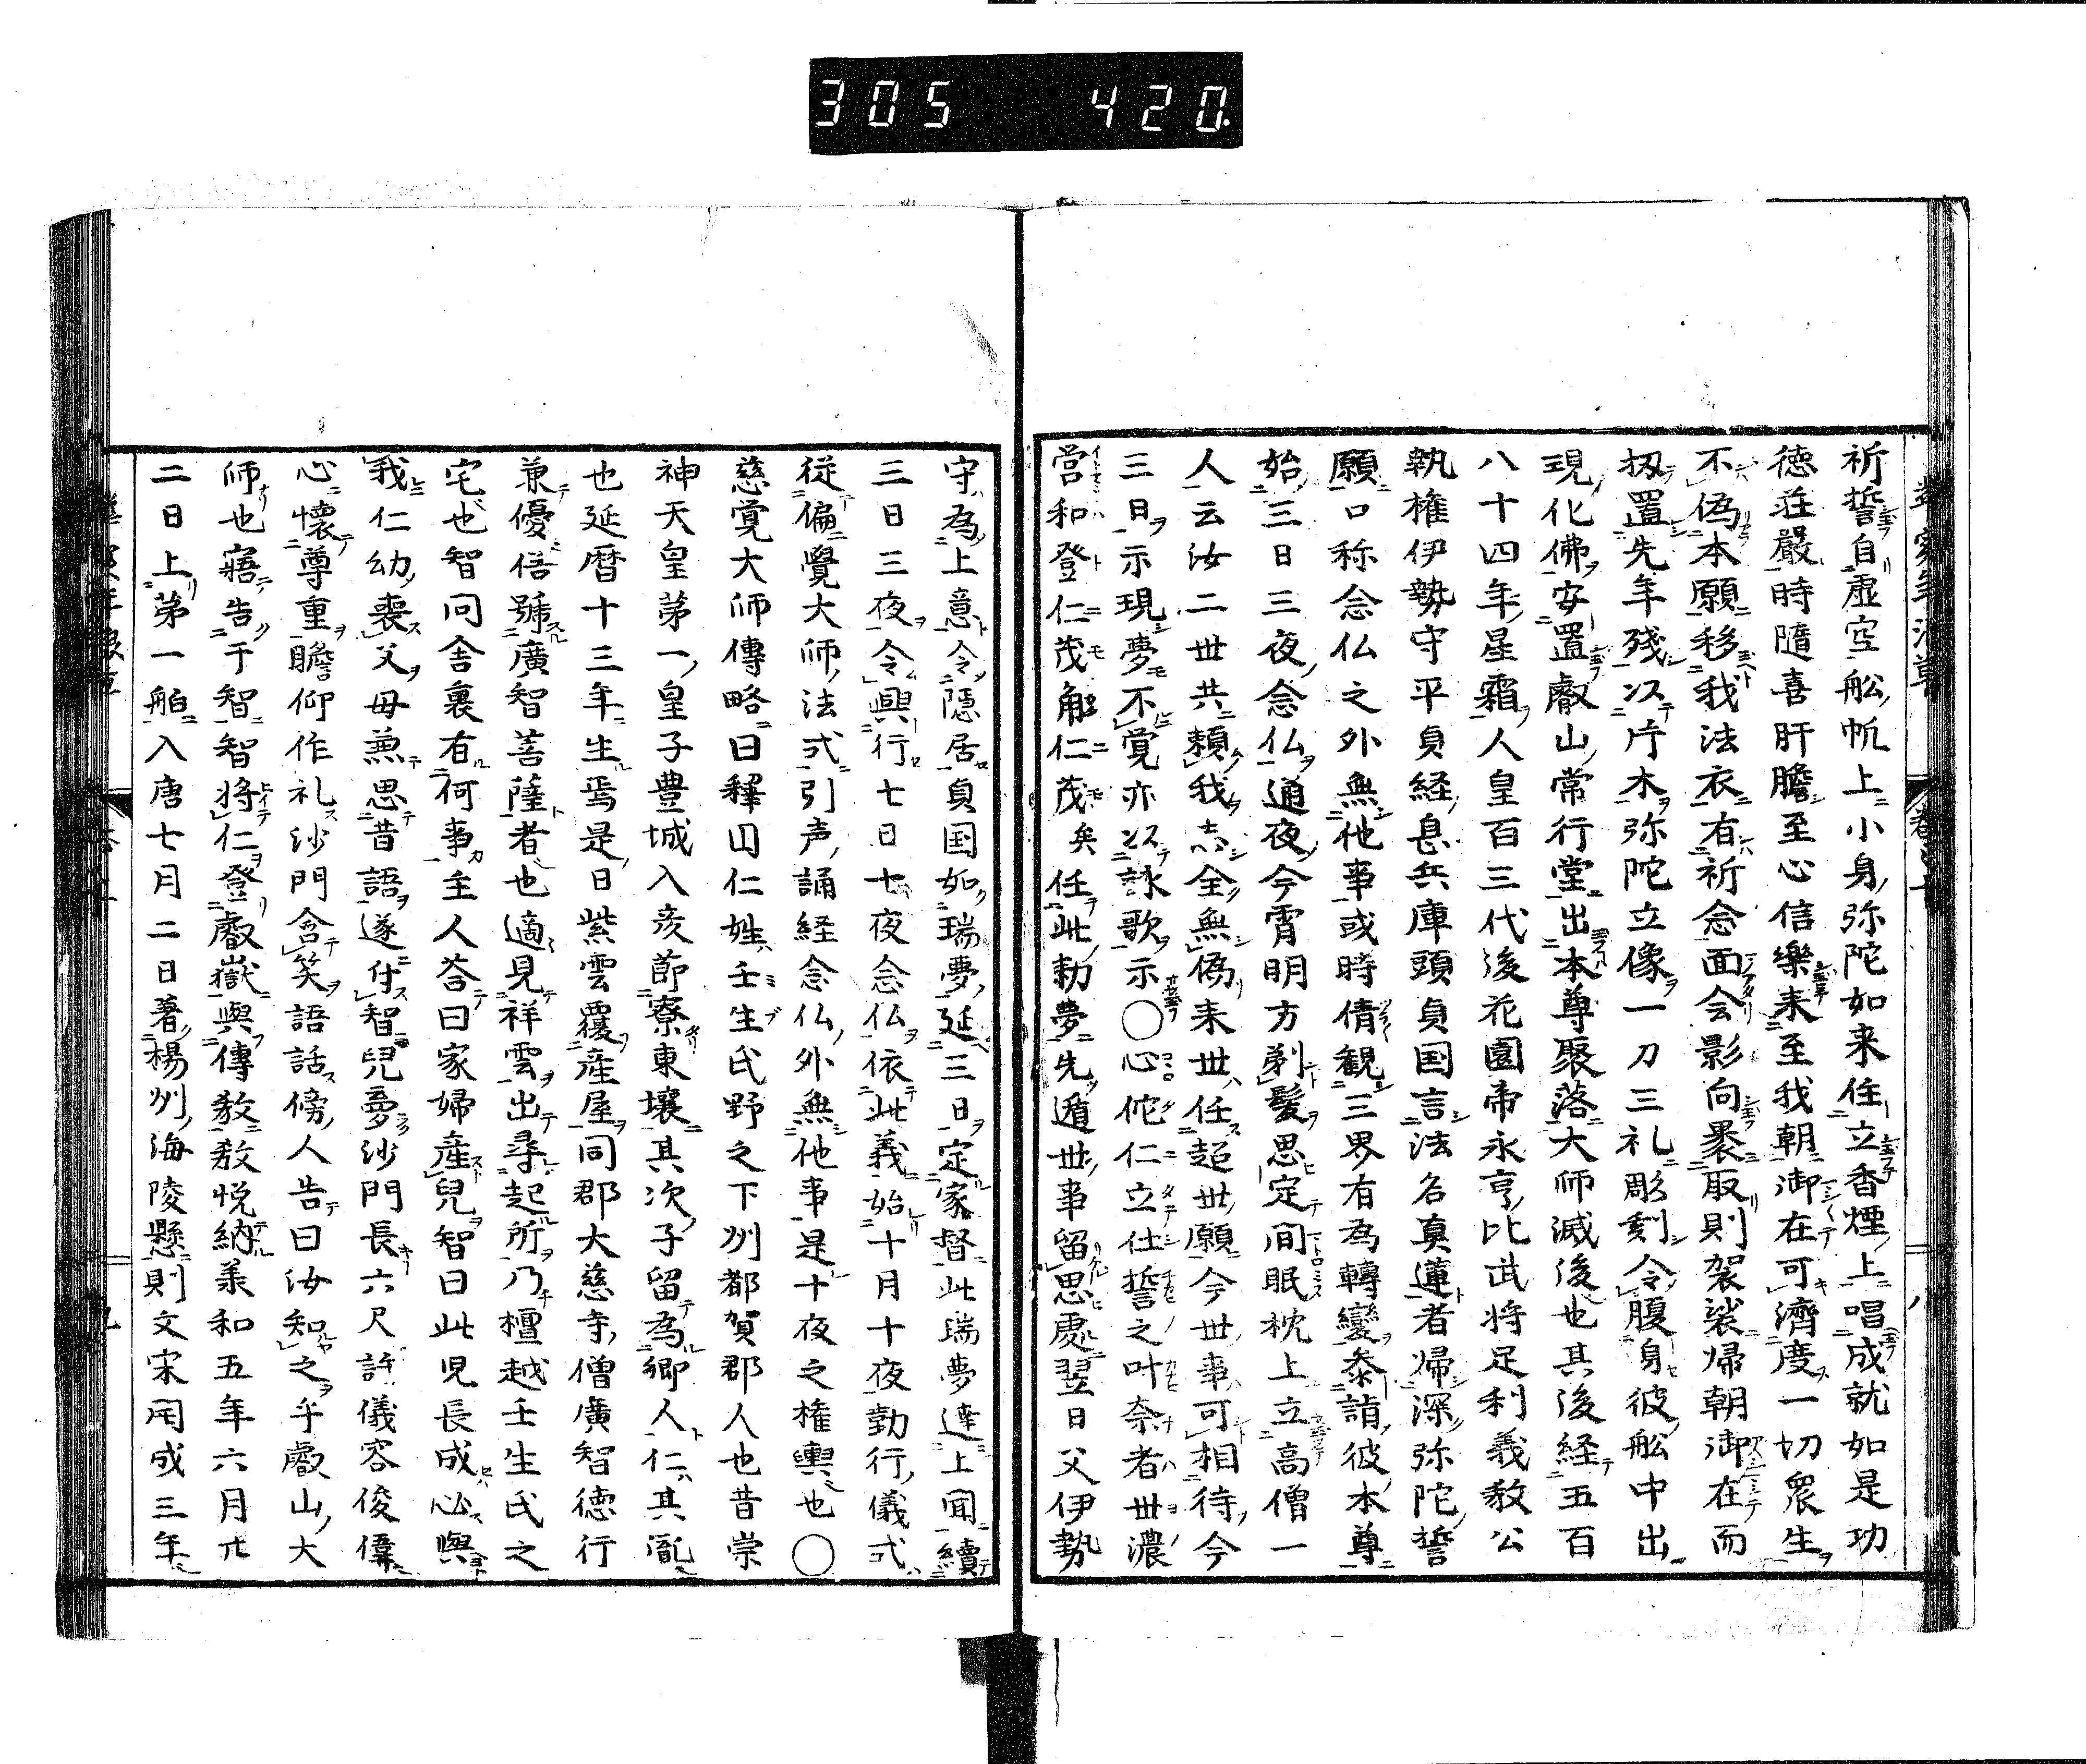 305 420.
祈誓自虚空舩帆上小身弥陀如来住立香煙上唱成就如是功
徳荘嚴時隨喜肝膽至心信樂来至我朝御在可濟度一切衆生
不偽本願移我法衣有祈念面会影向褁取則袈裟帰朝御在而
扨置先年殘以片木弥陀立像一刀三礼彫刻令腹身彼舩中出
現化佛安置叡山常行堂出本尊聚落大师滅後也其後経五百
八十四年星霜人皇百三代後花園帝永亨比武将足利義教公
執権伊勢守平貞経息兵庫頭貞国言法名真蓮者帰深弥陀誓
願口称念仏之外無他事或時倩観三界有為轉變叅詣彼本尊
始三日三夜念仏通夜今宵明方剃髮思定间眠枕上立高僧一
人云汝二世共頼我志全無偽来世任超世願今世事可相待今
三日示現夢不覚亦以詠歌示〇心佗仁立仕誓之叶奈者世濃
営和登仁茂觧仁茂矣任此勅夢先遁世事留思處翌日父伊勢
守為上意令隠居貞国如瑞夢延三日定家督此瑞夢達上聞續
三日三夜令興行七日七夜念仏依此義始十月十夜勤行儀式
従偏覺大师法式引声誦経念仏外無他事是十夜之権輿也〇
慈覚大师傳略曰釋囙仁姓壬生氏野之下州都賀郡人也昔崇
神天皇苐一皇子豊城入彦莭寮東壤其次子留為卿人仁其亂
也延暦十三年生焉是日紫雲覆産屋同郡大慈寺僧廣智徳行
兼優俗號廣智菩薩者也適見祥雲出尋起所乃檀越壬生氏之
宅也智问舍裏有何事主人荅曰家婦産兒智曰此児長成必與
我仁幼喪父母兼思昔語遂付智兒夢沙門長六尺許儀容俊偉
心懷尊重瞻仰作礼沙門含笑語話傍人告曰汝知之乎叡山大
师也寤告于智智将仁登叡嶽與傳教教悦納羕和五年六月廿
二日上苐一舶入唐七月二日著楊州海陵懸則文宋開成三年